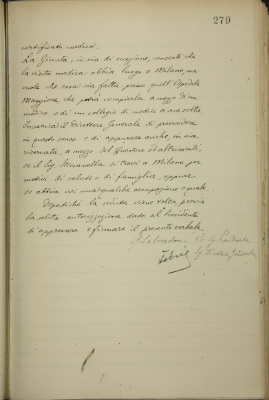 279
certificato medico.
La Giunta, in via di eccezione, consente che
la visita medica abbia luogo a Milano, ma
vuole che essa sia fatta presso quell'Ospedale
Maggiore che potrà compierla a mezzo di un
medico o di un collegio di medici a sua scelta.
Incarica il Direttore Generale di provvedere
in questo senso e di appurare anche, in via
riservata, a mezzo del Questore od altrimenti,
se il Sig. si trovi a Milano per
motivi di salute o di famiglia, oppure
se abbia ivi una qualche occupazione e quale.
Dopodiché la seduta viene tolta, previa
la solita autorizzazione data al Presidente
di approvare e firmare il presente verbale.
Il Presidente
Il Direttore Generale